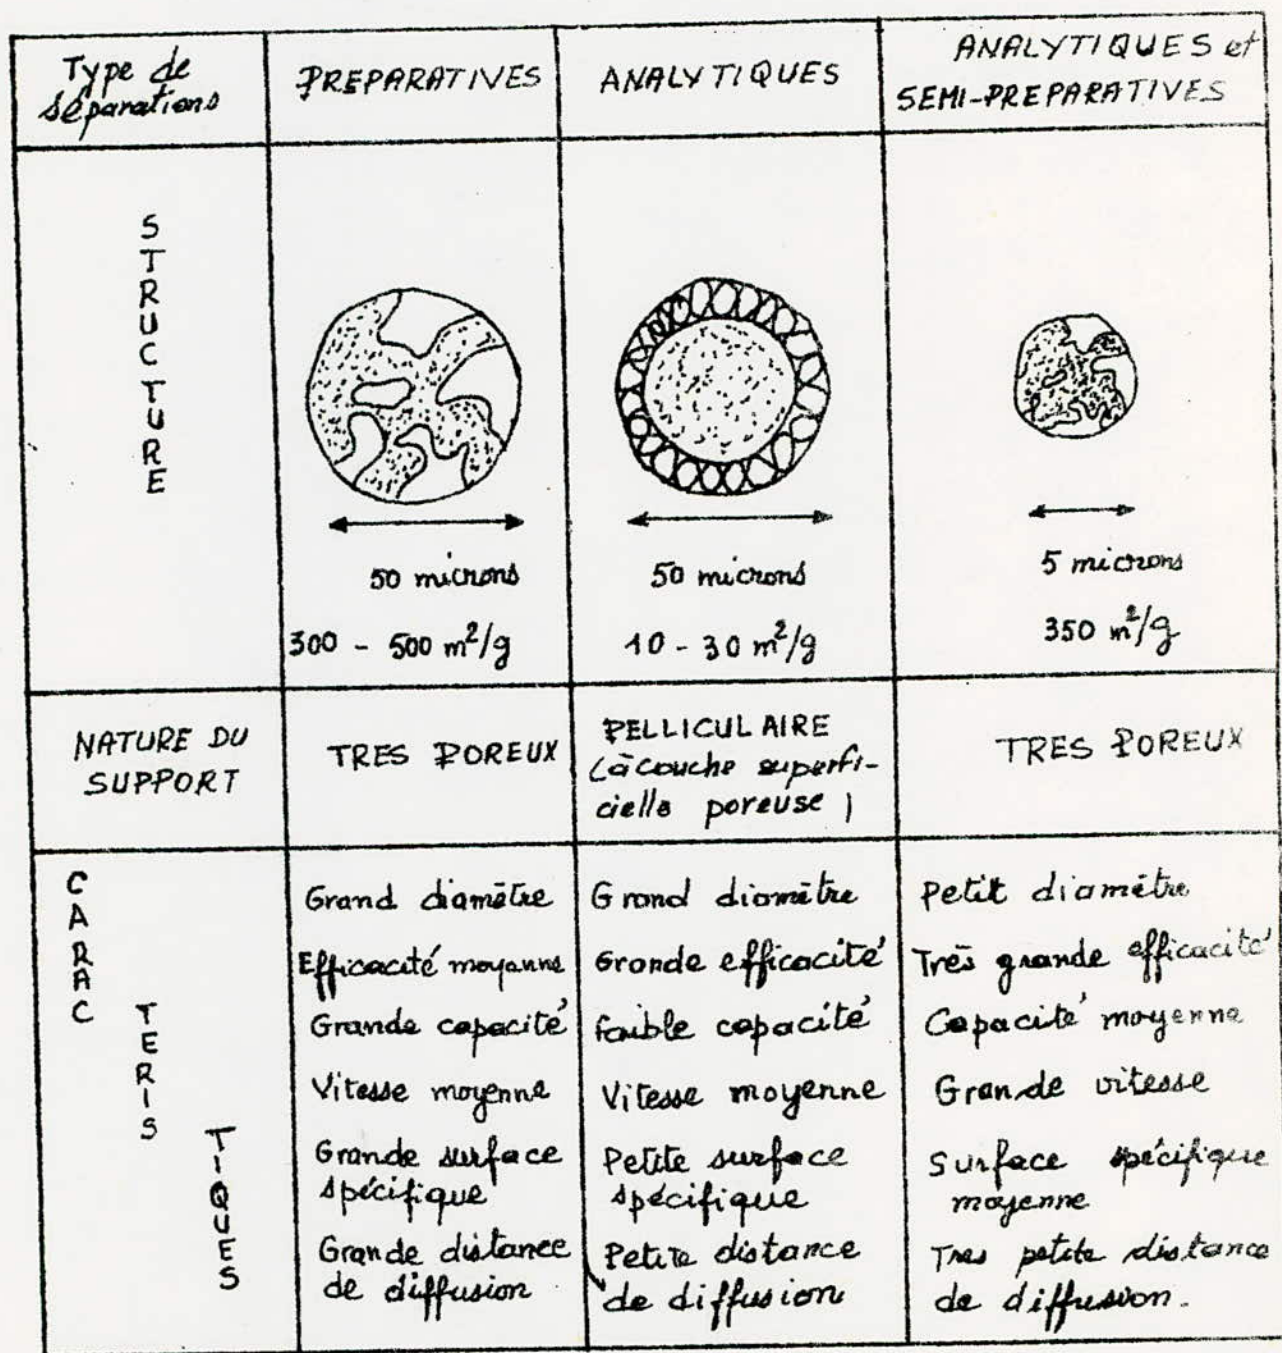 Type de
séparations
PREPARATIVES
ANALYTIQUES
ANALYTIQUES et
SEMI-PREPARATIVES
STRUCTURE
50 microns
300 - 500 m²/g
50 microns
10 - 30 m²/g
5 microns
350 m²/g
NATURE DU
SUPPORT
TRES POREUX
PELLICULAIRE
(à couche superfi-
cielle poreuse)
TRES POREUX
CARAC
TERIS
TIQUES
Grand diamètre
Efficacité moyenne
Grande capacité
Vitesse moyenne
Grande surface
spécifique
Grande distance
de diffusion
Grand diamètre
Grande efficacité
faible capacité
Vitesse moyenne
Petite surface
spécifique
Petite distance
de diffusion
Petit diamètre
Très grande efficacité
Capacité moyenne
Grande vitesse
Surface spécifique
moyenne
Tres petite distance
de diffusion.